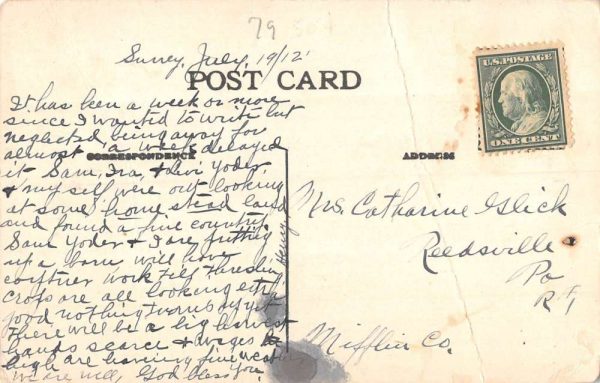 79
Surrey, July, 19/12
POST CARD
U.S. POSTAGE
ONE CENT
CORRESPONDENCE
ADDRESS
It has been a week or more
since I wanted to write but
neglected, being away for
almost a week delayed
it Sam, Ira, & Levi Yoder
& my self were out looking
at some home stead land
and found a fine country.
Sam Yoder & I are putting
up a barn will have
work till threshing
Crops are all looking
good nothing by yet
There will be a big harvest
hands scarce & wages
high are having fine weather
we are well, God bless you.
Henry
Mrs. Catharine Glick
Reedsville
Pa
R 1
Mifflin Co.